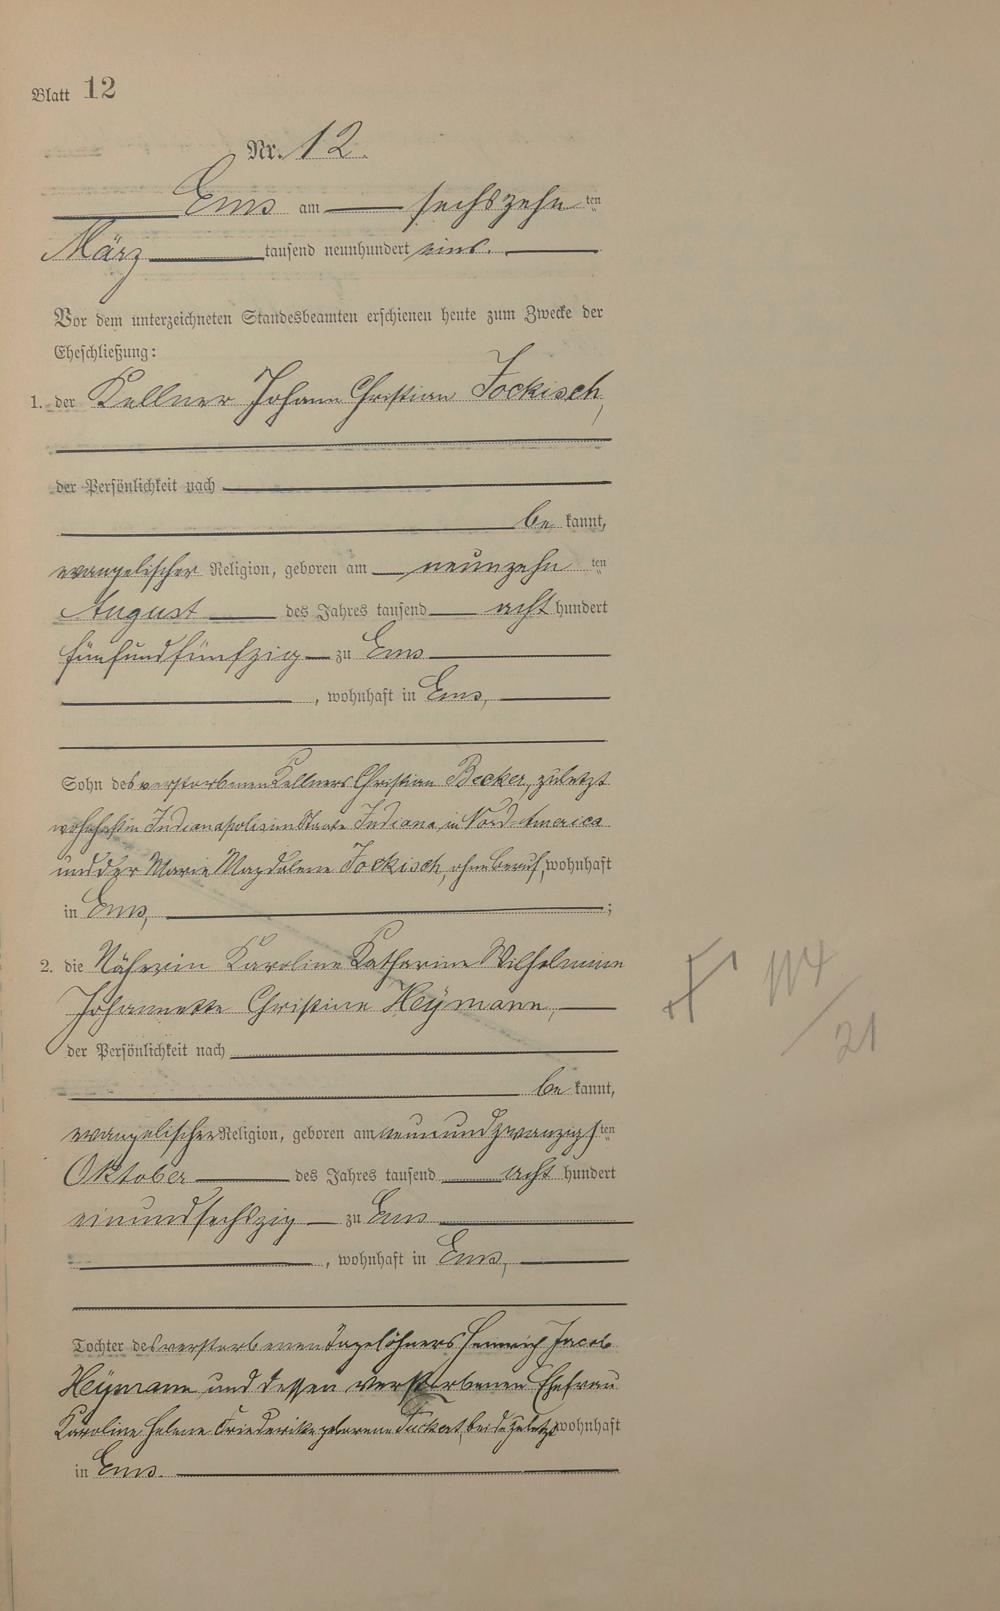 Blatt 12
Nr. 12.
Ems am sechszehn ten
März tausend neunhundert eins.
Vor dem unterzeichneten Standesbeamten erschienen heute zum Zwecke der
Eheschließung:
1. der Kellner Johann Christian Jockisch,
der Persönlichkeit nach
be kannt,
evangelischer Religion, geboren am neunzehn ten
August des Jahres tausend acht hundert
fünfundfünfzig zu Ems
, wohnhaft in Ems,
Sohn des verstorbenen Kellners Christian Becker, zuletzt
wohnhaft in Indianapolis im Staate Indiana in Nord-America
und der Marie Magdalene Jockisch, ohne Beruf, wohnhaft
in Ems, ;
2. die Näherin Karoline Katharine Wilhelmine
Johannette Christine Heymann,
der Persönlichkeit nach
be kannt,
evangelischer Religion, geboren am neunundzwanzigs ten
Oktober des Jahres tausend acht hundert
einundsechszig zu Ems
, wohnhaft in Ems,
Tochter des verstorbenen Tagelöhners Heinrich Jacob
Heymann und dessen verstorbenen Ehefrau
Karoline Helene Friederike geborene beide zuletzt wohnhaft
in Ems.
21